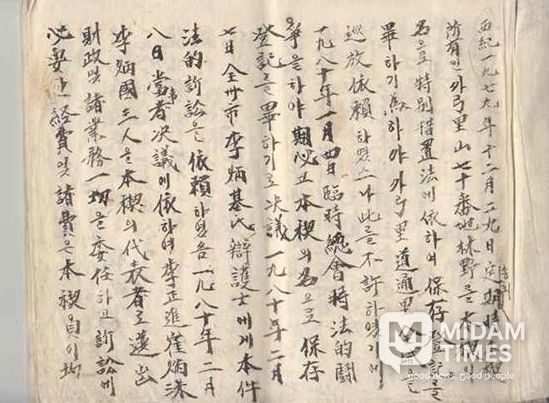 西紀一九七九年十二月二九日定期總會時本禊
所有인外弓里山七十番地林野를本禊
名으로特別措置法에依하여保存登記를
畢하기爲하야外弓里道通里
巡放依賴하였으나此를不許하였기에
一九八十年一月四日臨時總會時法的鬪
爭을하야期必코本禊의名으로保存
登記를畢하기로決議一九八十年二月
七日全州市李炳基氏辯護士에게本件
法的訴訟을依賴하였音一九八十年二月
八日當者決議에依하여李正進崔炳洙
李炳國三人을本禊의代表者로選出
財政및諸業務一切을委任하고訴訟에
必要한経費및諸費은本禊員이均
MIDAM
TIMES
good news, good people